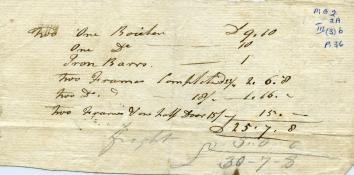 M G 2
2A
III (3) b
P. 36
Two One Boiler £9.10
One Do 10
Iron Barrs — 1
Two Frames Complete 2. 6. 8
Two Do. — 18/- 1. 16. —
Two Frames & one half Door 15/- 15. —
£ 25. 7. 8
freight
30-7-8